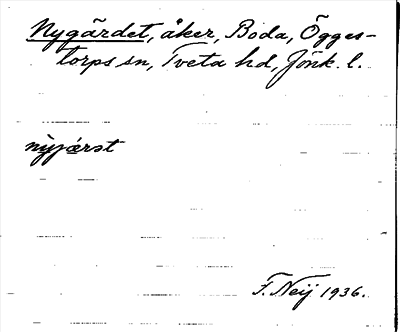 Nygärdet, åker, Boda, Ögges-
torps sn, Tveta hd, Jönk. l.
nỳjá̤rst
F. Neij 1936.